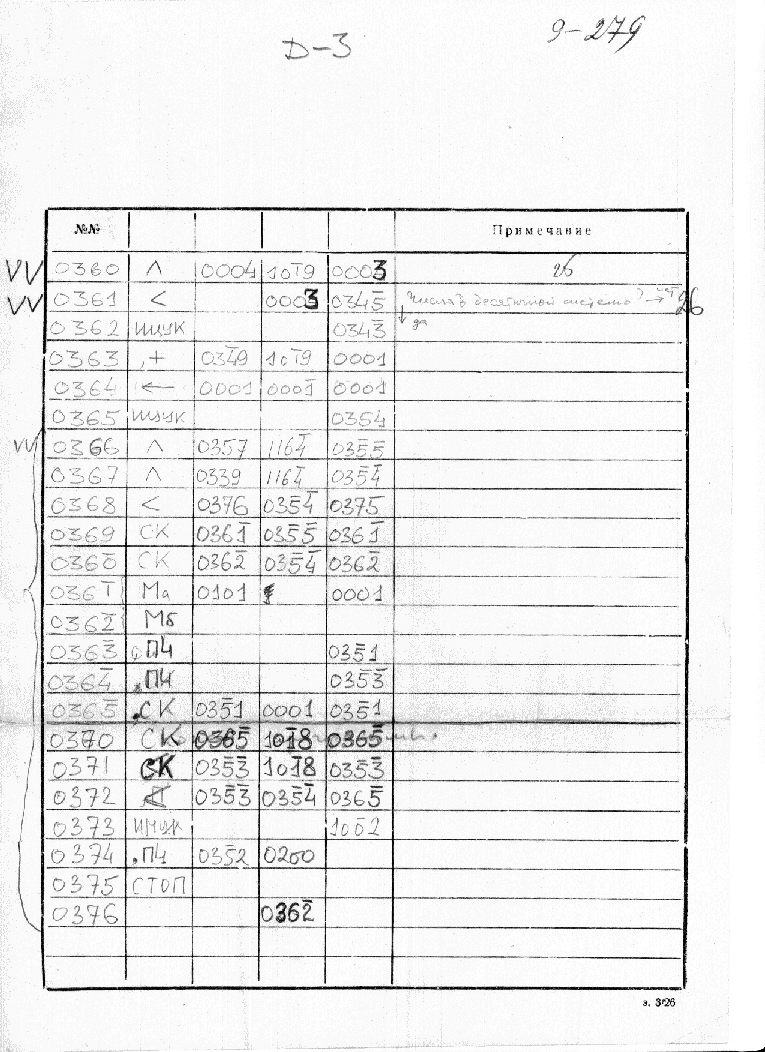 9-279
D-3
№№ Примечание
VV 0360 Λ 0004 10T̅9 0003 26
VV 0361 < 0003 034̅5 Числа в десятичной системе? → 26
0362 ИШУК 034̅3 ↓ да
0363 ,+ 034̅9 10T̅9 0001
0364 ← 0001 0001̅ 0001
0365 ИШУК 0354
VV 0366 Λ 0357 1164̅ 035̅5
0367 Λ 0339 1164̅ 035̅4̅
0368 < 0376 035̅4̅ 0375
0369 СК 0361̅ 035̅5̅ 0361̅
0360̅ СК 0362̅ 035̅4̅ 0362̅
036T̅ Ма 0101 0001
0362̅ Мб
0363̅ ПЧ 035̅1
0364̅ .ПЧ 035̅3
0365̅ .СК 035̅1 0001 035̅1
0370 СК 0365̅ 101̅8 0365̅
0371 СК 035̅3 101̅8 035̅3
0372 < 035̅3 035̅4 0365̅
0373 ИШУК 100̅2
0374 .ПЧ 035̅2 0200
0375 СТОП
0376 0362̅
з. 3/26